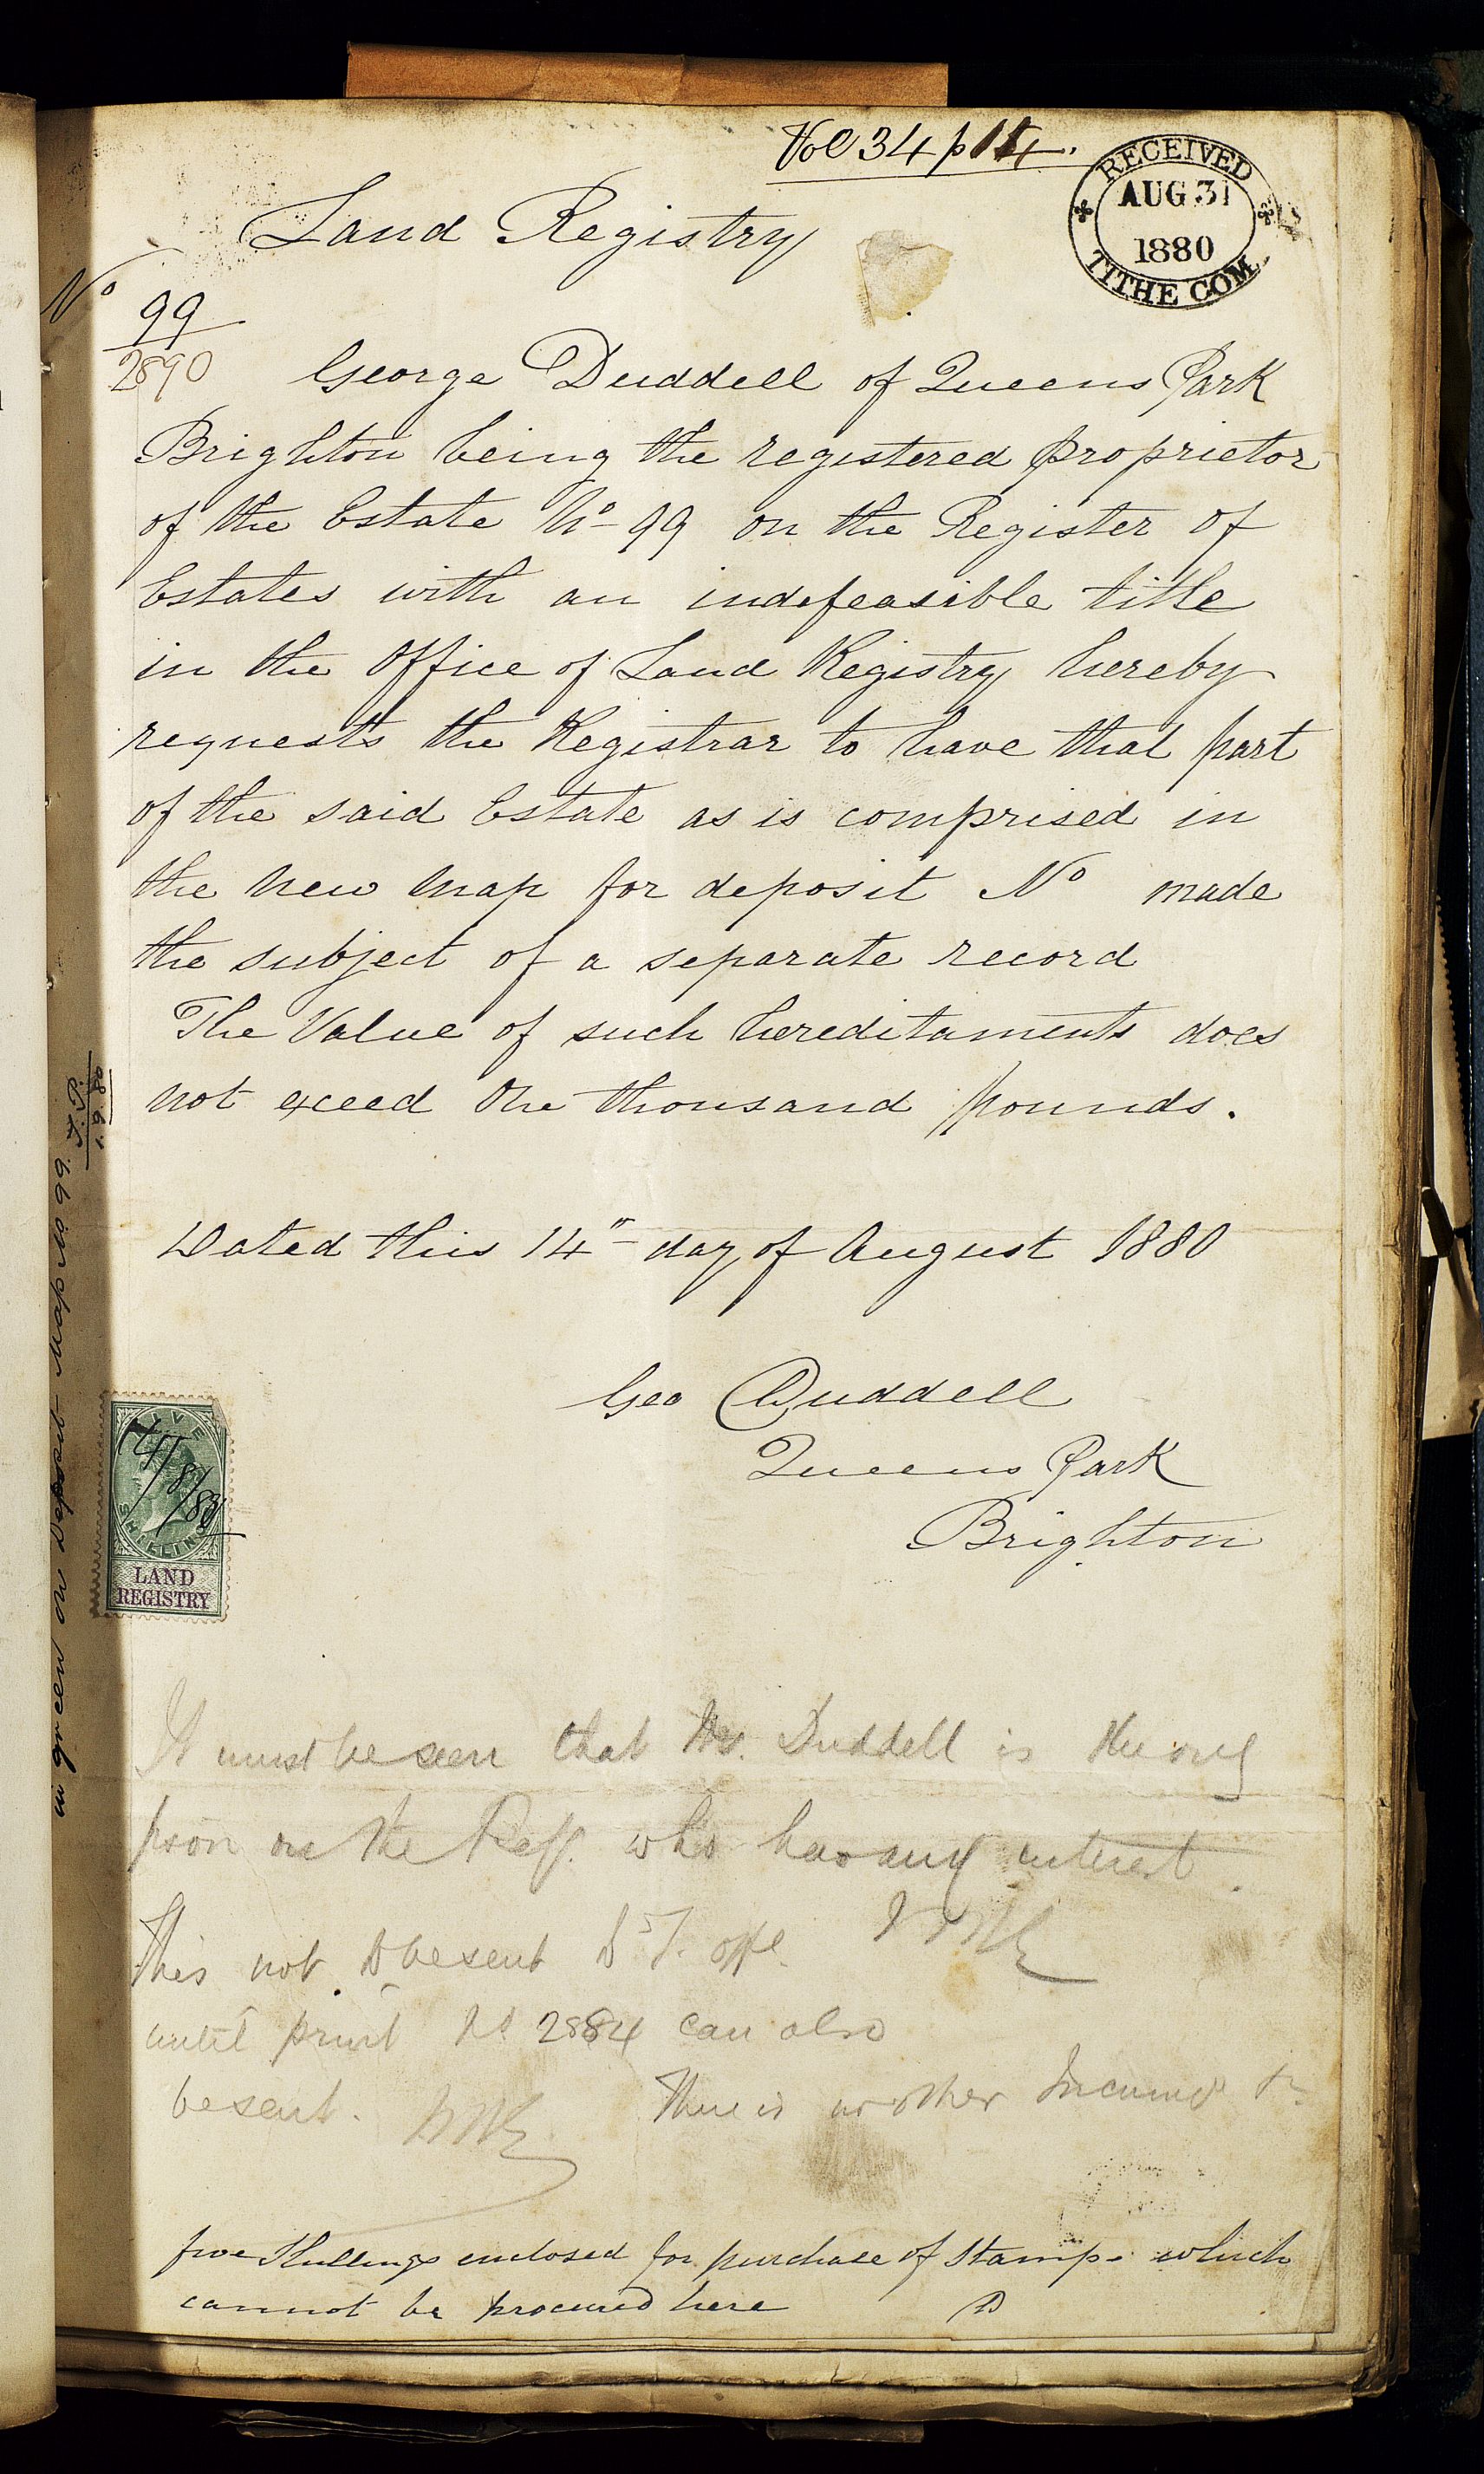 Vol 34 p 114.
RECEIVED
AUG 31
1880
TITHE COM.
Land Registry
No 99
2890
George Duddell of Queens Park
Brighton being the registered proprietor
of the Estate No 99 on the Register of
Estates with an indefeasible title
in the Office of Land Registry hereby
requests the Registrar to have that part
of the said Estate as is comprised in
the new map for deposit No made
the subject of a separate record
The Value of such hereditaments does
not exceed One thousand pounds.
Dated this 14th day of August 1880
Geo Duddell
Queens Park
Brighton
FIVE
SHILLINGS
14/8/80
LAND
REGISTRY
in green on Deposit Map No 99.
1.9.80
It must be seen that Mr. Duddell is the only
pson on the Regr. who has any interest.
This not to be sent to T. offe.
until print No 2884 can also
be sent.
There is no other Incumbr
five Shillings enclosed for purchase of Stamps which
cannot be procured here D